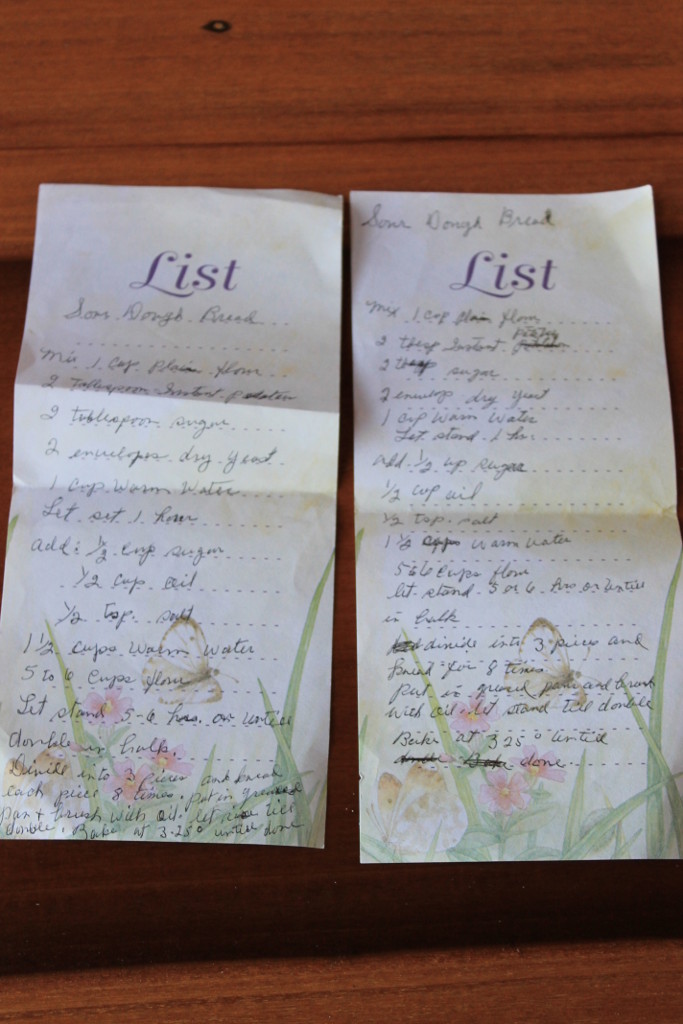 List
Sour Dough Bread
Mix 1 cup plain flour
2 tablespoon Instant potatoes
2 tablespoon sugar
2 envelopes dry yeast
1 cup warm water
Let set 1 hour
add: 1/2 cup sugar
1/2 cup oil
1/2 tsp. salt
1 1/2 cups warm water
5 to 6 cups flour
Let stand 5-6 hrs. or until
double in bulk.
Divide into 3 pieces and knead
each piece 8 times. put in greased
pan & brush with oil. let rise till
double. Bake at 325° until done
Sour Dough Bread
List
Mix 1 cup plain flour
2 tbsp Instant
2 tbsp sugar
2 envelop dry yeast
1 cup warm water
Let stand 1 hr.
add 1/2 cup sugar
1/2 cup oil
1/2 tsp. salt
1 1/2 cups warm water
5 6 cups flour
let stand 5 or 6 hrs or until
in bulk
divide into 3 pieces and
knead for 8 times
put in greased pans and brush
with oil let stand till double
Bake at 325° until
done